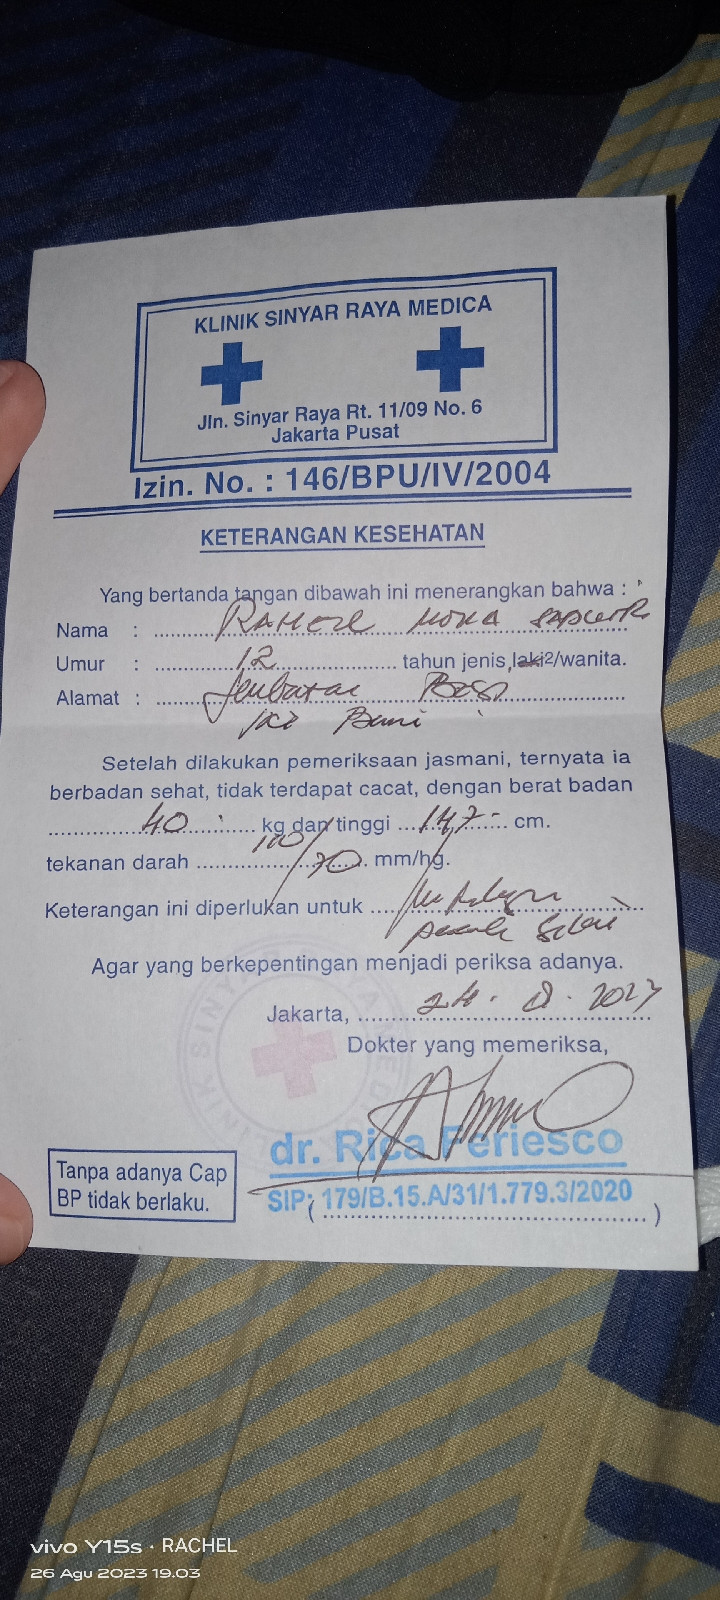 KLINIK SINYAR RAYA MEDICA
Jln. Sinyar Raya Rt. 11/09 No. 6
Jakarta Pusat
Izin. No. : 146/BPU/IV/2004
KETERANGAN KESEHATAN
Yang bertanda tangan dibawah ini menerangkan bahwa :
Nama :
Umur : 12 tahun jenis, laki2/wanita.
Alamat : Jembatan Besi
Setelah dilakukan pemeriksaan jasmani, ternyata ia
berbadan sehat, tidak terdapat cacat, dengan berat badan
40 kg dan tinggi 147 cm.
tekanan darah 100/70 mm/hg.
Keterangan ini diperlukan untuk
Agar yang berkepentingan menjadi periksa adanya.
Jakarta, 24. 8. 2023
Dokter yang memeriksa,
dr. Rica Feriesco
SIP: 179/B.15.A/31/1.779.3/2020
(..................................................)
Tanpa adanya Cap
BP tidak berlaku.
KLINIK SINYAR RAYA MEDICA
vivo Y15s · RACHEL
26 Agu 2023 19.03